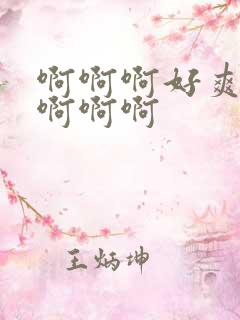 啊啊啊好爽
啊啊啊
王炳坤